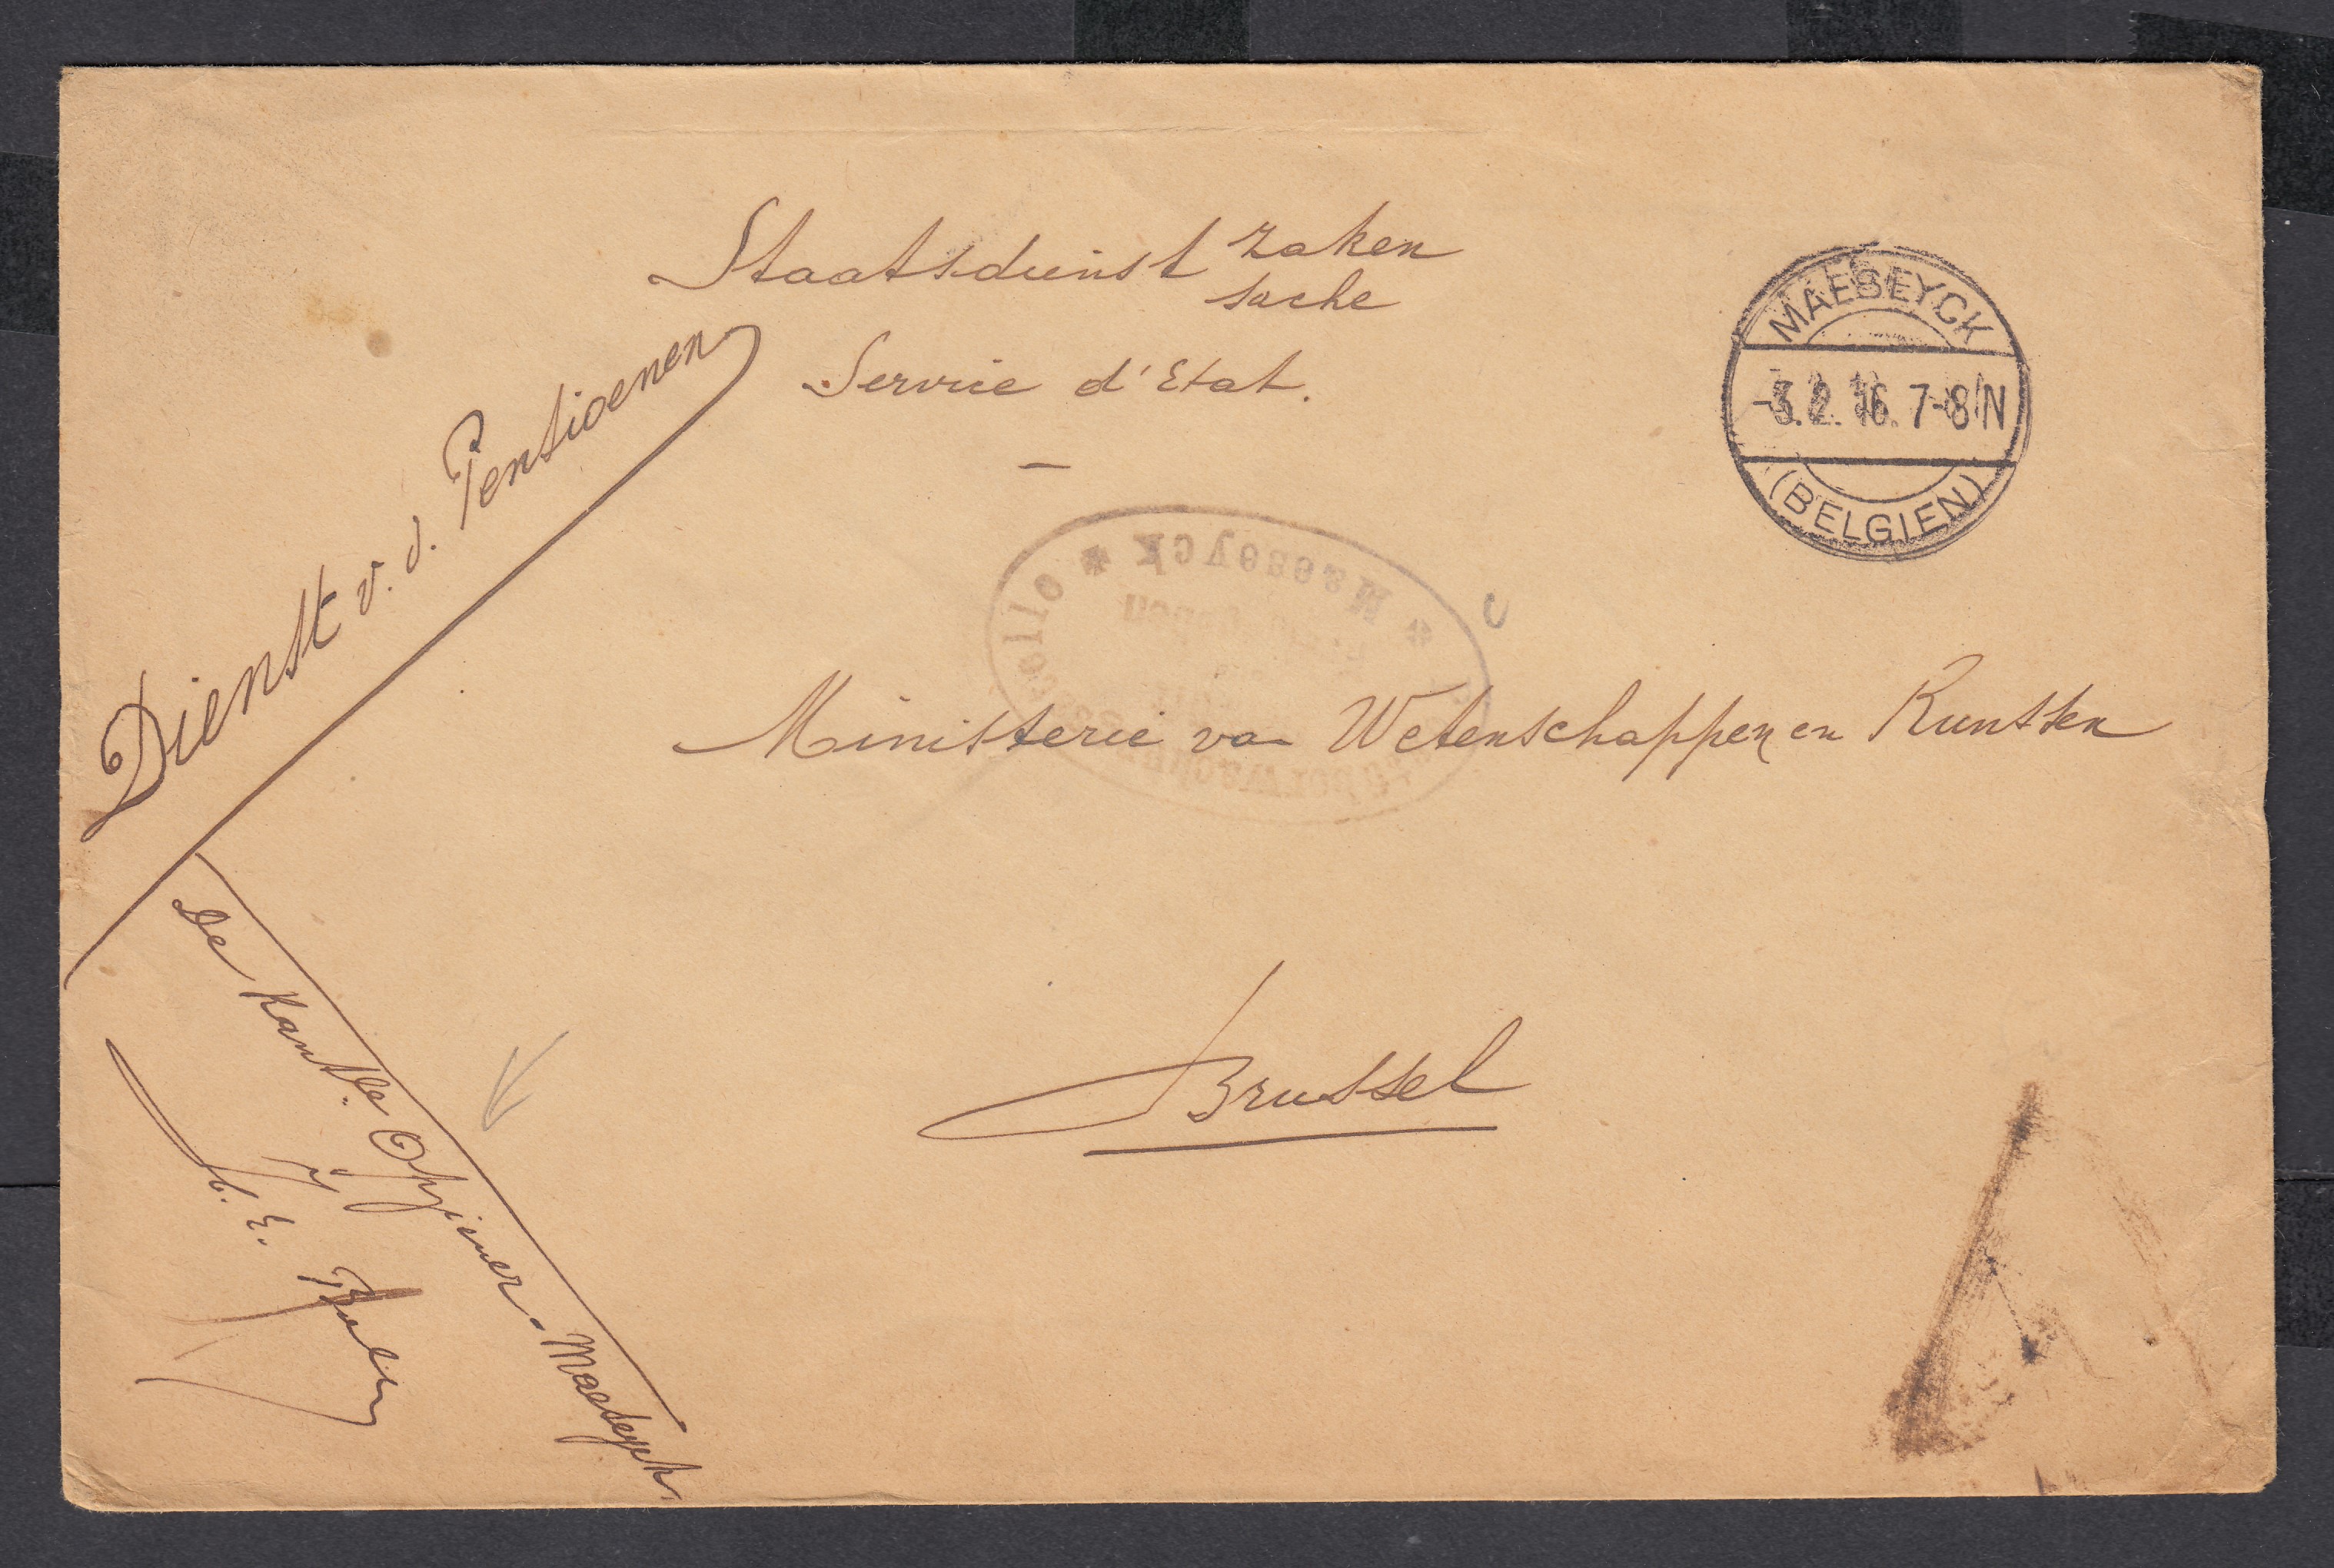 Staatsdienst zaken
sache
Service d'Etat.
MAESEYCK
-3.2.16. 7-8 N
(BELGIEN)
Dienst v. d. Pensioenen
* Maeseyck *
Ministerie van Wetenschappen en Kunsten
Brussel
De Kantle. Opziener. Maeseyck